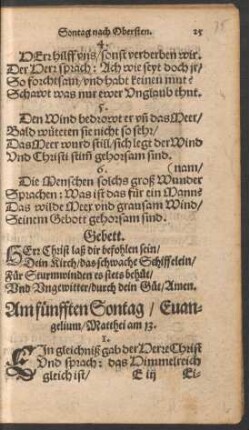 Sontag nach Obersten. 25
4.
HErr hilff vns / sonst verderben wir.
Der Herr sprach: Ach wie seyt doch jr /
So forchtsam / vnd habt keinen mut
Schawt was nur ewer Vnglaub thut.
5.
Den Wind bedrowt er vñ das Meer /
Bald wüteten sie nicht so sehr /
Das Meer wurd still / sich legt der Wind
Vnd Christi stiṁ gehorsam sind.
6. (nam /
Die Menschen solchs groß Wunder
Sprachen: Was ist das für ein Mann?
Das wilde Meer vnd grausam Wind /
Seinem Gebott gehorsam sind.
Gebett.
HErr Christ laß dir befohlen sein /
Dein Kirch / das schwache Schiffelein /
Für Sturmwinden es stets behüt /
Vnd Vngewitter / durch dein Güt / Amen.
Am fünfften Sontag / Euan-
gelium / Matthei am 13.
1.
EIn gleichniß gab der Herre Christ
Vnd sprach: das Himmelreich
gleich ist / E iij Ei-